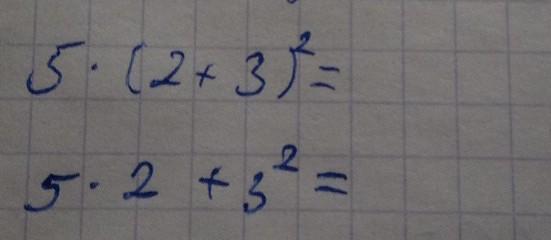 5·(2+3)²=
5·2+3²=